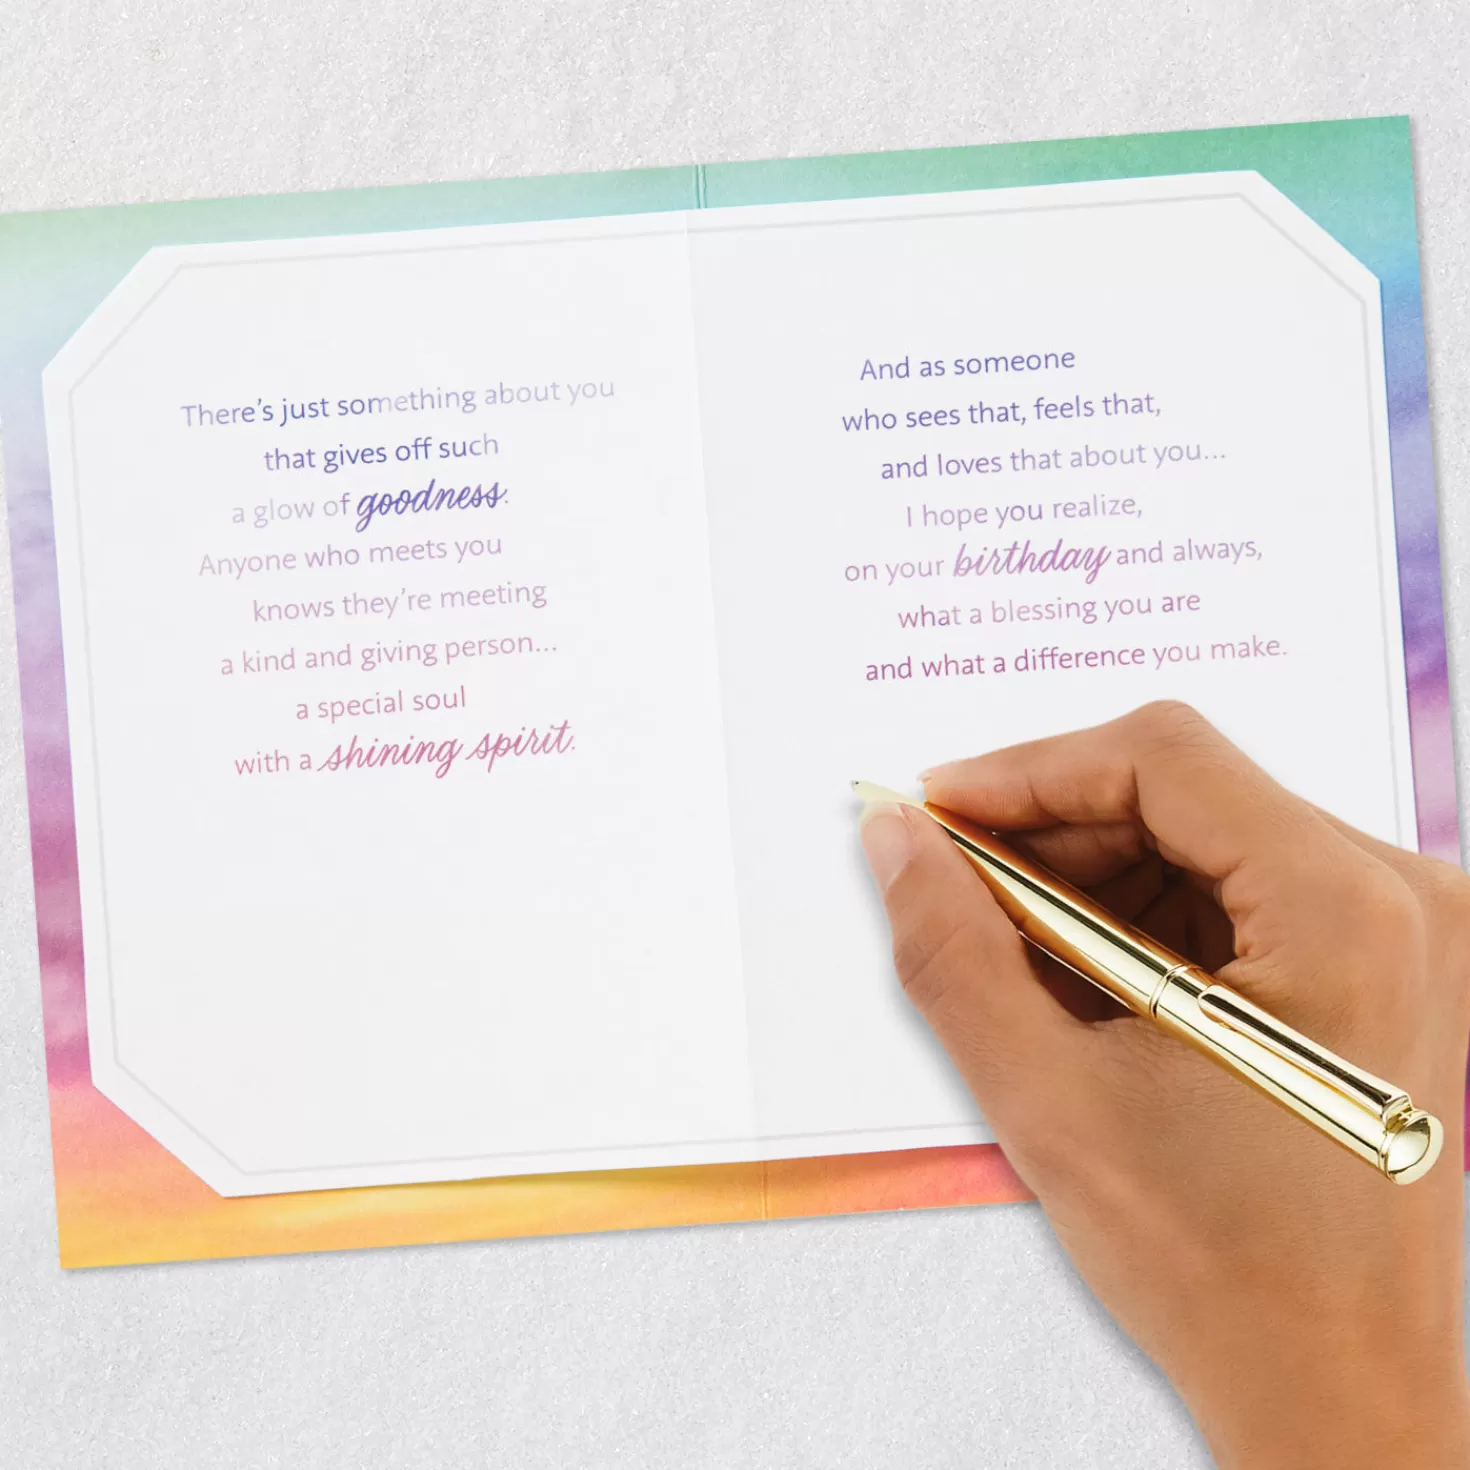 There's just something about you
that gives off such
a glow of goodness.
Anyone who meets you
knows they're meeting
a kind and giving person...
a special soul
with a shining spirit.
And as someone
who sees that, feels that,
and loves that about you...
I hope you realize,
on your birthday and always,
what a blessing you are
and what a difference you make.